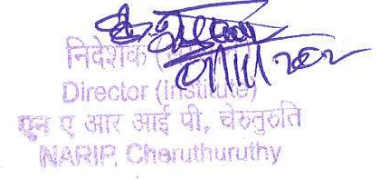 निदेशक (
Director (Institute)
एन ए आर आई पी, चेरुतुरुति
NARIP, Cheruthuruthy